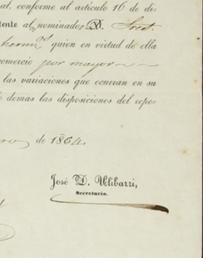 al, conforme al artículo 16 de
tente al nominado D.
quien en virtud de ella
comercio por mayor
las variaciones que ocurran en su
demas las disposiciones del espe-
de 1864.
José D. Ulibarri,
Secretario.